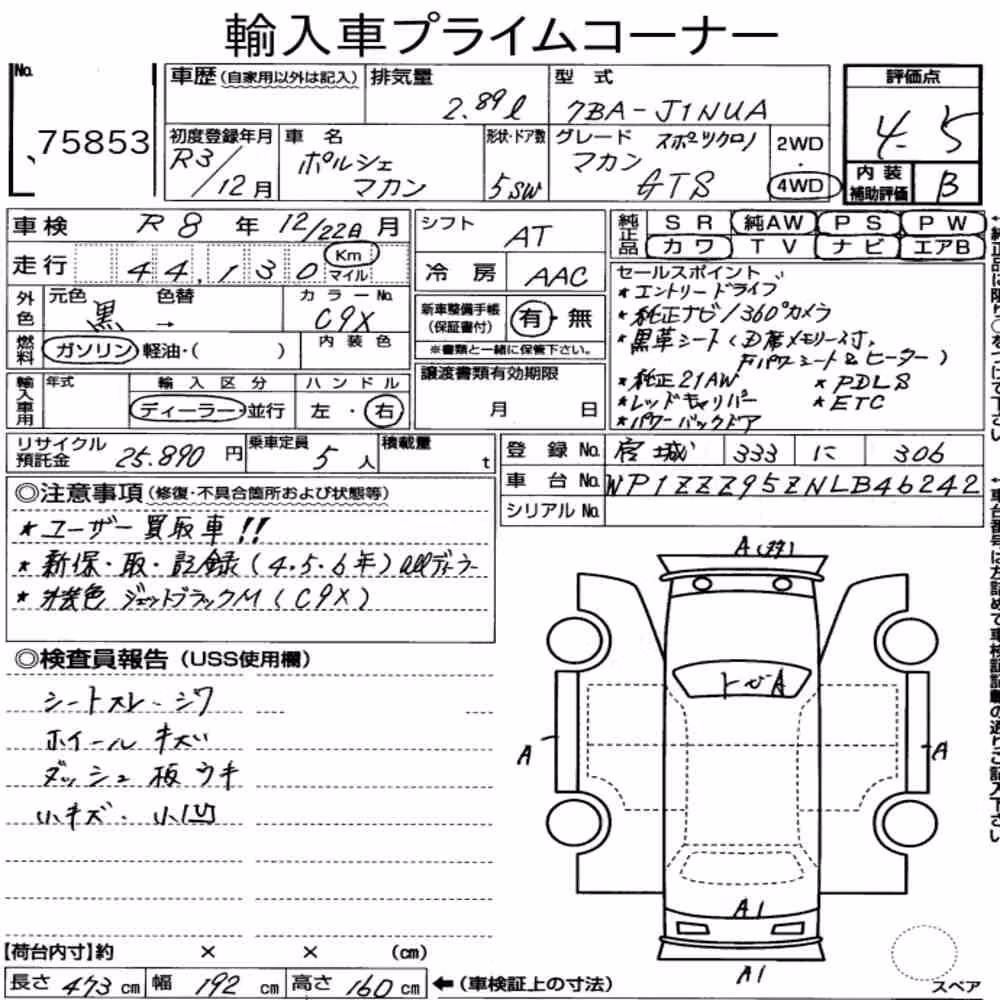 輸入車プライムコーナー
No. 75853
車歴 (自家用以外は記入)
排気量 2.89ℓ
型式 7BA-J1NUA
評価点 4.5
内装補助評価 B
初度登録年月 R3/12月
車名 ポルシェ マカン
形状・ドア数 5SW
グレード マカン スポーツクロノ GTS
2WD・4WD
車検 R8年12/22日月
走行 44,130 Km マイル
シフト AT
冷房 AAC
純正品 SR 純AW PS PW
カワ TV ナビ エアB
外色 元色 黒 → 色替
カラーNo. C9X
内装色
燃料 ガソリン 軽油・( )
新車整備手帳(保証書付) 有・無
※書類と一緒に保管下さい。
セールスポイント
*エントリードライブ
*純正ナビ/360°カメラ
*黒革シート(D席メモリー付、
Fパワーシート&ヒーター)
*純正21AW *PDLS
*レッドキャリパー *ETC
*パワーバックドア
輸入車用 年式
輸入区分 ディーラー・並行
ハンドル 左・右
譲渡書類有効期限
月 日
リサイクル預託金 25.890円
乗車定員 5人
積載量 t
登録No. 宮城 333 に 306
車台No. WP1ZZZ95ZNLB46242
シリアルNo.
◎注意事項(修復・不具合箇所および状態等)
*ユーザー買取車!!
*新保・取・記録(4.5.6年)allディーラー
*外装色 ジェットブラックM(C9X)
◎検査員報告(USS使用欄)
シートスレ・シワ
ホイールキズ
ダッシュ板ウキ
小キズ・小凹
トビA
A
A
A1
A1
【荷台内寸】約 × × (cm)
長さ 473 cm 幅 192 cm 高さ 160 cm ←(車検証上の寸法)
スペア